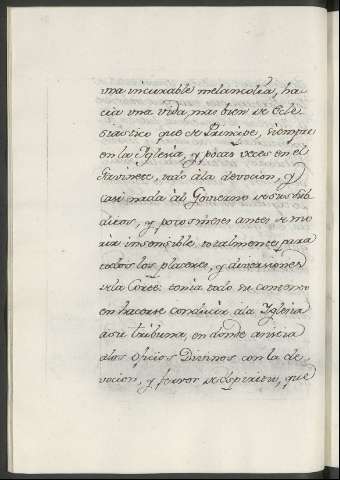 una incurable melancolia, ha-
cia una vida, mas bien de Ecle-
siastico que de Principe, siempre
en la Iglesia, y pocas veces en el
Gavinete, todo à la devocion, y
casi nada àl Govierno de sus sub-
ditos, y pocos meses antes de mo-
rir insensible totalmente para
todos los placeres, y diversiones
de la Corte: tenia todo su consuelo
en hacerse conducir à la Iglesia
à su tribuna, en donde asistia
à los oficios Divinos con la de-
vocion, y fervor de espiritu, que